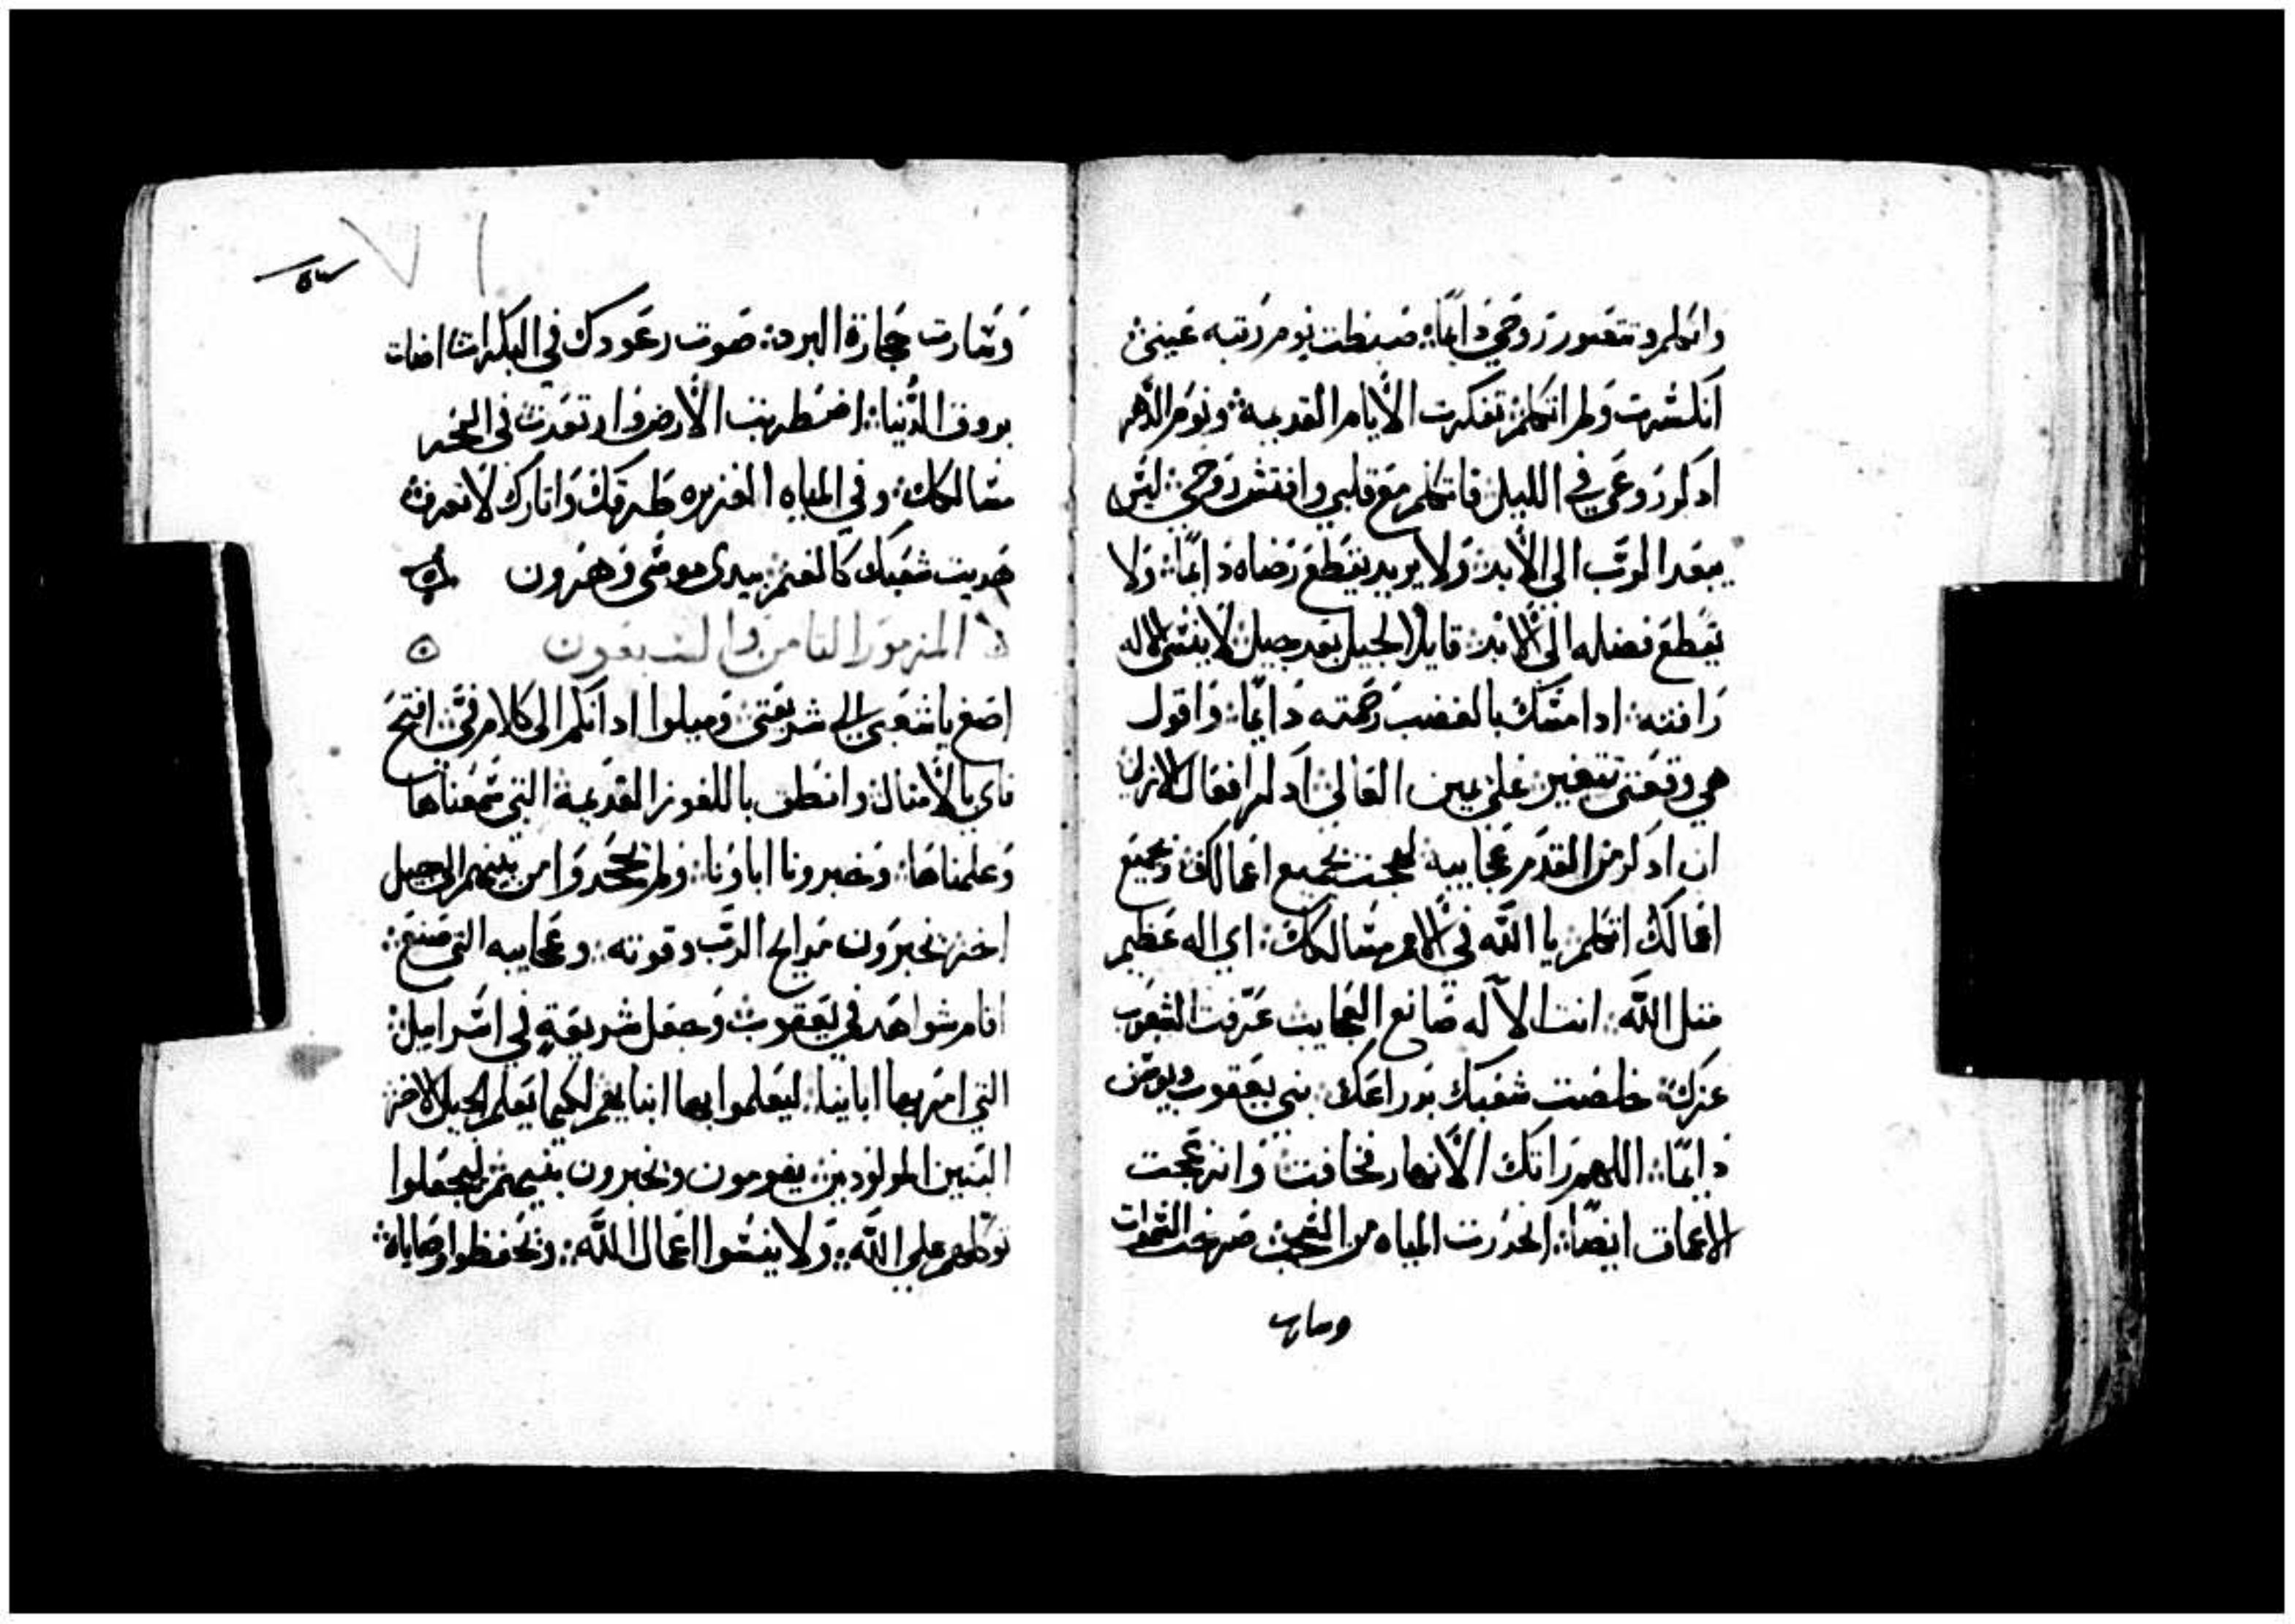 واتكلم وتتغور روحي دايمًا ضبطت نوم رتبه عيني
انكسرت ولم اتكلم تفكرت الايام القديمة ونوم الدهر
ادكرروعي في الليل فاتكلم مع قلبي وافتش روحي ليس
يبعد الرب الي الابد ولا يريد تقطع رضاه دايمًا ولا
تقطع فضله الي الابد قايلا لجيل بعد جيل لا ينسي الاله
رافته ادا مسك بالغضب رحمته دايمًا واقول
هي وقعتي تتغير علي يمين العالي ادكر افعال الازلي
اني ادكر من القدم عجايبه لهجت بجميع اعمالك وبجميع
اعمالك اتكلم يا الله في الامر مسالكك اي اله عظيم
متل الله انت الآله صانع العجايب عرفت الشعوب
عزك خلصت شعبك بدراعك بني يعقوب ويوسف
دايمًا اللهم راتك الانهار فخافت وانزعجت
الاعماق ايضًا انحدرت المياه من السحب صرخت السموات
وسارت
٥٣
٧١
وسارت حجارة البرد صوت رعودك في البكرات اضات
بروق الدنيا اضطربت الارض وارتعدت في البحر
مسالكك وفي المياه الغزيره طرقك واتارك لا تعرف
هديت شعبك كالغنم بيدي موسي وهرون
المزمور التامن والسبعون
اصغ يا شعبي الي شريعتي وميلوا ادانكم الي كلام في افتح
فاي بالامتال وانطق باللغوز القديمة التي سمعناها
وعلمناها وخبرونا اباونا ولم تجحدوا من بنيهم الي جيل
اخر تخبرون مدايح الرب وقوته وعجايبه التي صنع
اقام شواهد في يعقوب وجعل شريعة في اسراييل
التي امر بها ابايينا ليعلموا بها ابنايهم لكيما يعلم الجيل الاخر
البنين المولودين يقومون ويخبرون بنيهم ليجعلوا
توكلهم علي الله ولا ينسوا اعمال الله وتحفظوا وصاياه